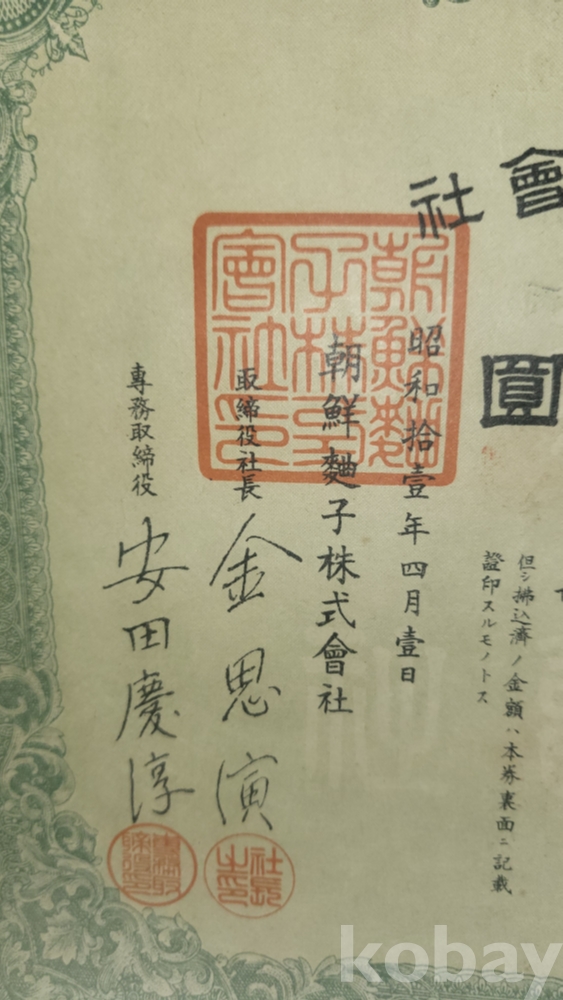 會社
圓
但シ拂込濟ノ金額ハ本券裏面ニ記載
證印スルモノトス
昭和拾壹年四月壹日
朝鮮麯子株式會社
取締役社長 金思演
專務取締役 安田慶淳
朝鮮麯
子株式
會社印
社長
之印
專務取
締役印
kobay